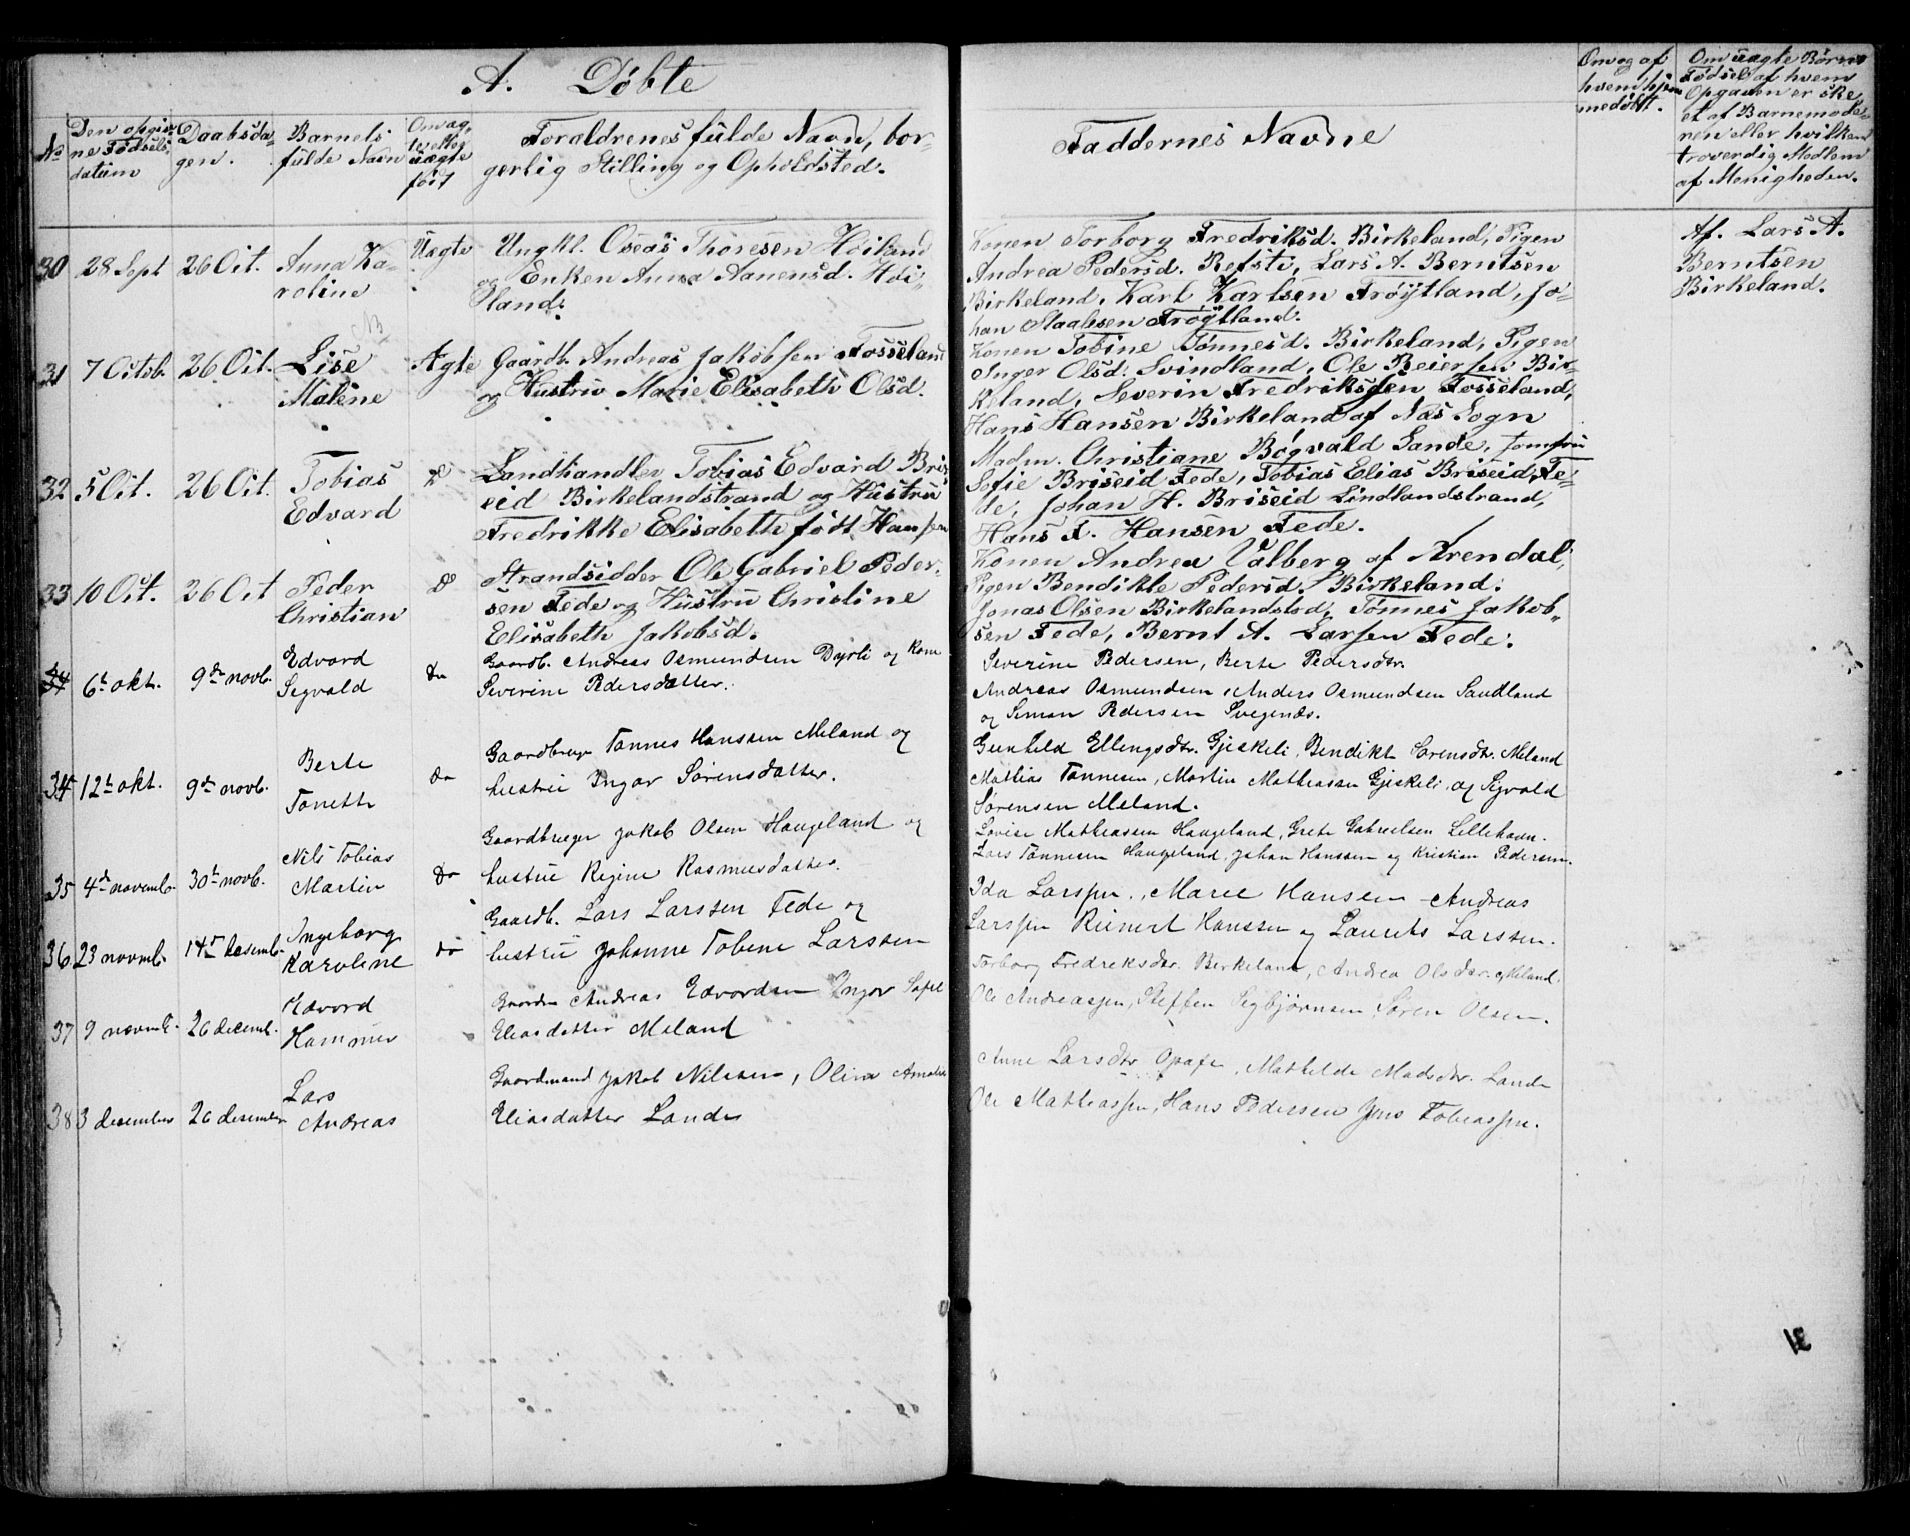 A. Døbte
No
Den opgiv-
ne Fødsels
datum
Daabsda-
gen.
Barnets
fulde Navn
Om æg-
te eller
uægte
født
Foraldrenes fulde Navn, bor-
gerlig Stilling og Opholdsted.
Faddernes Navne
Om og af
hvem hjem
medøbt.
Om uægte Børns
Fødsel af hvem
Opgaven er ske
et af Barnemode-
ren eller hvilken
troverdig Medlem
af Menigheden.
30 28 Sept 26 Oct. Anna Ka-
roline
Uægte
Ungkl. Oseas Thoresen Høiland
og Enken Anna Aanensd. Høi-
land.
Konen Torborg Fredriksd. Birkeland, Pigen
Andrea Pedersd. Refsti, Lars A. Berntsen
Birkeland, Karl Karlsen Frøytland, Jo-
han Staalesen Frøytland.
Af. Lars A.
Berntsen
Birkeland.
31 7 Octob. 26 Oct. Lise
Malene
Ægte
Gaardb. Andreas Jakobsen Fosseland
og Hustru Marie Elisabeth Olsd.
Konen Tobine Tønnesd. Birkeland, Pigen
Inger Olsd. Svindland, Ole Reiersen Bir-
keland, Severin Fredriksen Fosseland,
Hans Hansen Birkeland af Næs Sogn
32 5 Oct. 26 Oct. Tobias
Edvard
Do
Landhandler Tobias Edvard Bris-
eid Birkelandstrand og Hustru
Fredrikke Elisabeth født Hansen
Madm. Christiane Bøgvald Sande, Jomfru
Sofie Briseid Fede, Tobias Elias Briseid, Fe-
de, Johan H. Briseid Lindlandstrand,
Hans F. Hansen Fede.
33 10 Oct. 26 Oct Peder
Christian
Do
Strandsidder Ole Gabriel Peder-
sen Fede og Hustru Christine
Elisabeth Jakobsd.
Konen Andrea Valberg af Arendal,
Pigen Bendikte Pedersd. Birkeland,
Jonas Olsen Birkelandstød, Tønnes Jakob-
sen Fede, Bernt A. Larsen Fede.
34 6te okt. 9de novb. Edvard
Segvald
do
Gaardb. Andreas Osmundsen Dyrli og kone
Severine Pedersdatter.
Severine Pedersen, Berte Pedersdtr.
Andreas Osmundsen, Anders Osmundsen Sandland
og Simon Pedersen Svegends.
34 12te okt. 9de novb. Berte
Tonette
do
Gaardbruger Tønnes Hanssen Meland og
hustru Ingar Sørensdatter.
Gunhild Ellingsdtr. Gjeskeli, Bendikt Sørensdtr. Meland
Mathias Tønnesen, Martin Mathiassen Gjeskeli og Segvald
Sørensen Meland.
35 4de novemb. 30te novb. Nils Tobias
Martin
do
Gaardbruger Jakob Olsen Haugeland og
hustru Regine Rasmusdatter.
Lovise Mathiassen Haugeland, Grete Gabrielsen Lillehavn.
Lars Tønnesen Haugeland, Johan Hanssen og Kristian Pedersen.
36 23 novemb. 14de desemb. Ingeborg
Karoline
do
Gaardb. Lars Larssen Fede og
hustru Johanne Tobine Larssen
Ida Larssen, Marie Hansen Andreas
Larssen Reinert Hanssen og Laurits Larssen.
37 9 novemb. 26 decemb. Edvard
Hammer
Gaardm Andreas Edvardsen Ingar Sofie
Eliasdatter Meland
Torborg Fredreksdtr. Berkeland, Andrea Olsdtr. Meland,
Ole Andreassen, Steffen Segbjørnsen Søren Olsen.
38 3 december 26 desember Lars
Andreas
Gaardmand Jakob Nilssen, Olina Amalie
Eliasdatter Lande
Anne Larsdtr Opofte, Mathilde Madsdtr. Lande
Ole Mathiassen, Hans Pedersen Jens Tobiassen.